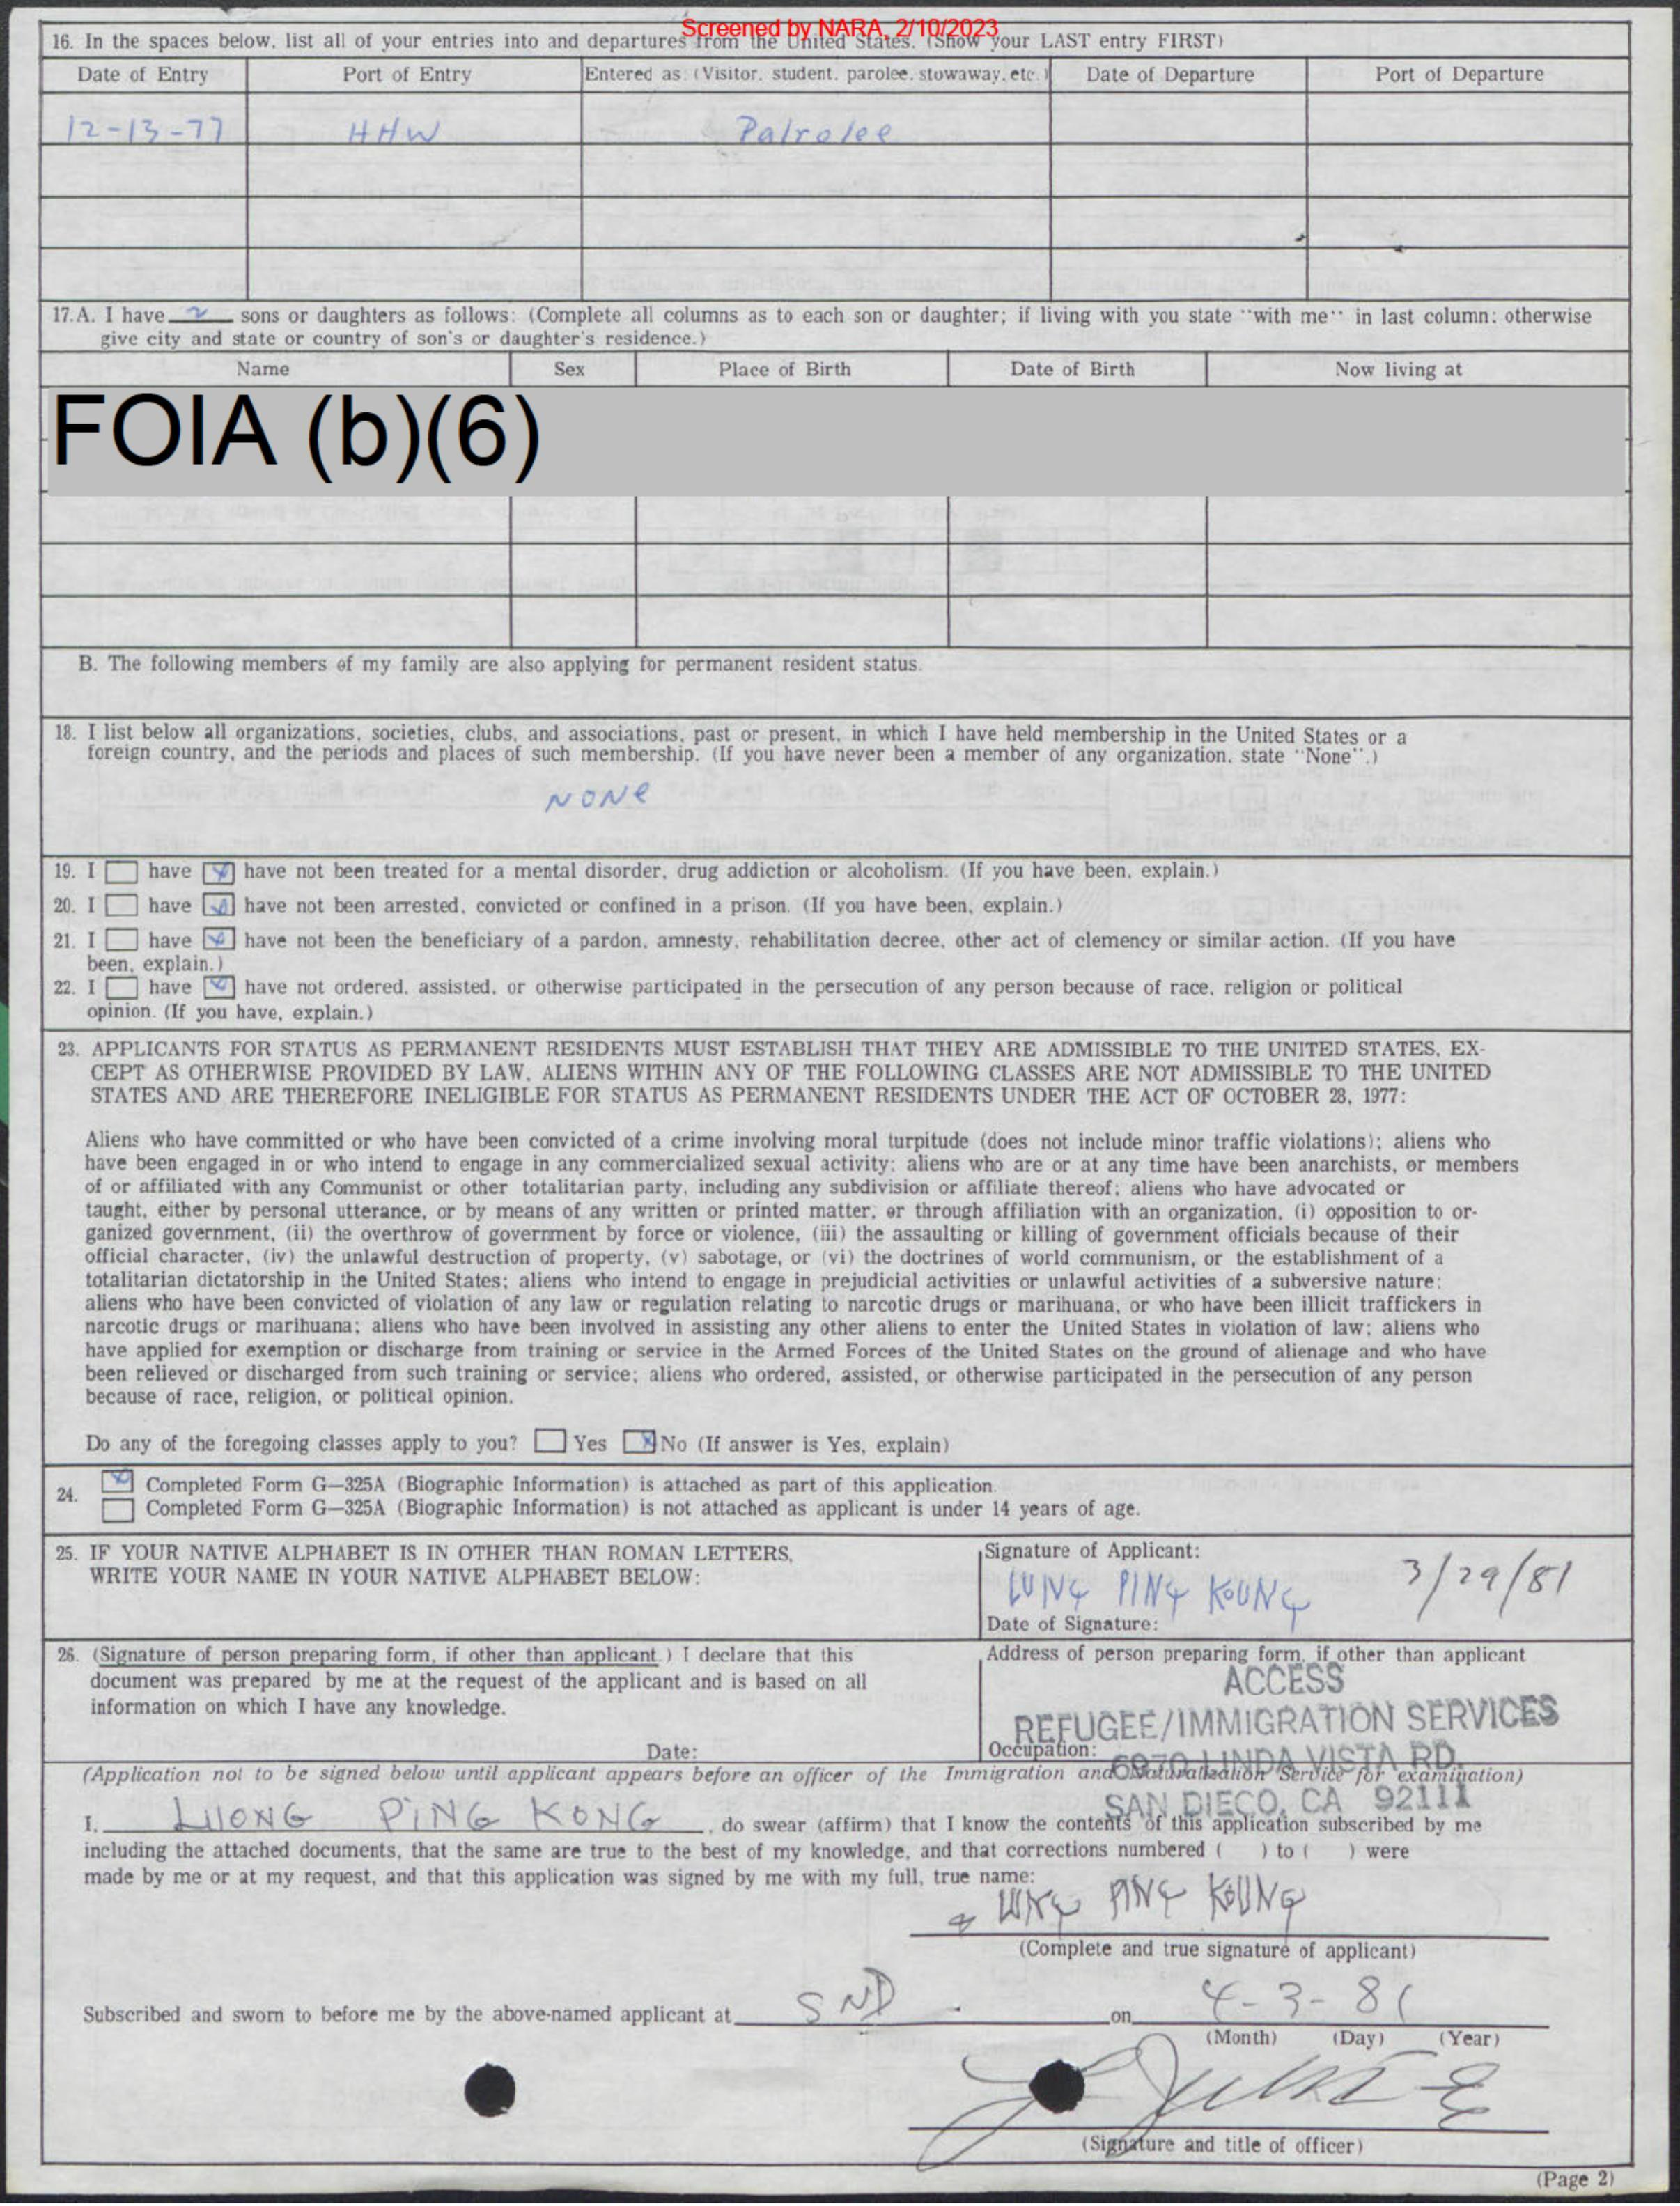 Screened by NARA, 2/10/2023
16. In the spaces below, list all of your entries into and departures from the United States. (Show your LAST entry FIRST)
Date of Entry Port of Entry Entered as: (Visitor, student, parolee, stowaway, etc.) Date of Departure Port of Departure
12-13-77 HHW Palrolee
17.A. I have 2 sons or daughters as follows: (Complete all columns as to each son or daughter; if living with you state "with me" in last column: otherwise
give city and state or country of son's or daughter's residence.)
Name Sex Place of Birth Date of Birth Now living at
FOIA (b)(6)
B. The following members of my family are also applying for permanent resident status.
18. I list below all organizations, societies, clubs, and associations, past or present, in which I have held membership in the United States or a
foreign country, and the periods and places of such membership. (If you have never been a member of any organization, state "None".)
NONe
19. I have have not been treated for a mental disorder, drug addiction or alcoholism. (If you have been, explain.)
20. I have have not been arrested, convicted or confined in a prison. (If you have been, explain.)
21. I have have not been the beneficiary of a pardon, amnesty, rehabilitation decree, other act of clemency or similar action. (If you have
been, explain.)
22. I have have not ordered, assisted, or otherwise participated in the persecution of any person because of race, religion or political
opinion. (If you have, explain.)
23. APPLICANTS FOR STATUS AS PERMANENT RESIDENTS MUST ESTABLISH THAT THEY ARE ADMISSIBLE TO THE UNITED STATES, EX-
CEPT AS OTHERWISE PROVIDED BY LAW, ALIENS WITHIN ANY OF THE FOLLOWING CLASSES ARE NOT ADMISSIBLE TO THE UNITED
STATES AND ARE THEREFORE INELIGIBLE FOR STATUS AS PERMANENT RESIDENTS UNDER THE ACT OF OCTOBER 28, 1977:
Aliens who have committed or who have been convicted of a crime involving moral turpitude (does not include minor traffic violations); aliens who
have been engaged in or who intend to engage in any commercialized sexual activity; aliens who are or at any time have been anarchists, or members
of or affiliated with any Communist or other totalitarian party, including any subdivision or affiliate thereof; aliens who have advocated or
taught, either by personal utterance, or by means of any written or printed matter, or through affiliation with an organization, (i) opposition to or-
ganized government, (ii) the overthrow of government by force or violence, (iii) the assaulting or killing of government officials because of their
official character, (iv) the unlawful destruction of property, (v) sabotage, or (vi) the doctrines of world communism, or the establishment of a
totalitarian dictatorship in the United States; aliens who intend to engage in prejudicial activities or unlawful activities of a subversive nature;
aliens who have been convicted of violation of any law or regulation relating to narcotic drugs or marihuana, or who have been illicit traffickers in
narcotic drugs or marihuana; aliens who have been involved in assisting any other aliens to enter the United States in violation of law; aliens who
have applied for exemption or discharge from training or service in the Armed Forces of the United States on the ground of alienage and who have
been relieved or discharged from such training or service; aliens who ordered, assisted, or otherwise participated in the persecution of any person
because of race, religion, or political opinion.
Do any of the foregoing classes apply to you? Yes No (If answer is Yes, explain)
24. Completed Form G-325A (Biographic Information) is attached as part of this application.
Completed Form G-325A (Biographic Information) is not attached as applicant is under 14 years of age.
25. IF YOUR NATIVE ALPHABET IS IN OTHER THAN ROMAN LETTERS,
WRITE YOUR NAME IN YOUR NATIVE ALPHABET BELOW:
Signature of Applicant:
LUNG PING KOUNG 3/29/81
Date of Signature:
26. (Signature of person preparing form, if other than applicant.) I declare that this
document was prepared by me at the request of the applicant and is based on all
information on which I have any knowledge.
Date:
Address of person preparing form, if other than applicant
ACCESS
REFUGEE/IMMIGRATION SERVICES
Occupation:
6970 LINDA VISTA RD.
SAN DIEGO, CA 92111
(Application not to be signed below until applicant appears before an officer of the Immigration and Naturalization Service for examination)
I, LUONG PiNG KONG, do swear (affirm) that I know the contents of this application subscribed by me
including the attached documents, that the same are true to the best of my knowledge, and that corrections numbered ( ) to ( ) were
made by me or at my request, and that this application was signed by me with my full, true name:
LUNG PING KOUNG
(Complete and true signature of applicant)
Subscribed and sworn to before me by the above-named applicant at SND on 4-3-81
(Month) (Day) (Year)
(Signature and title of officer)
(Page 2)